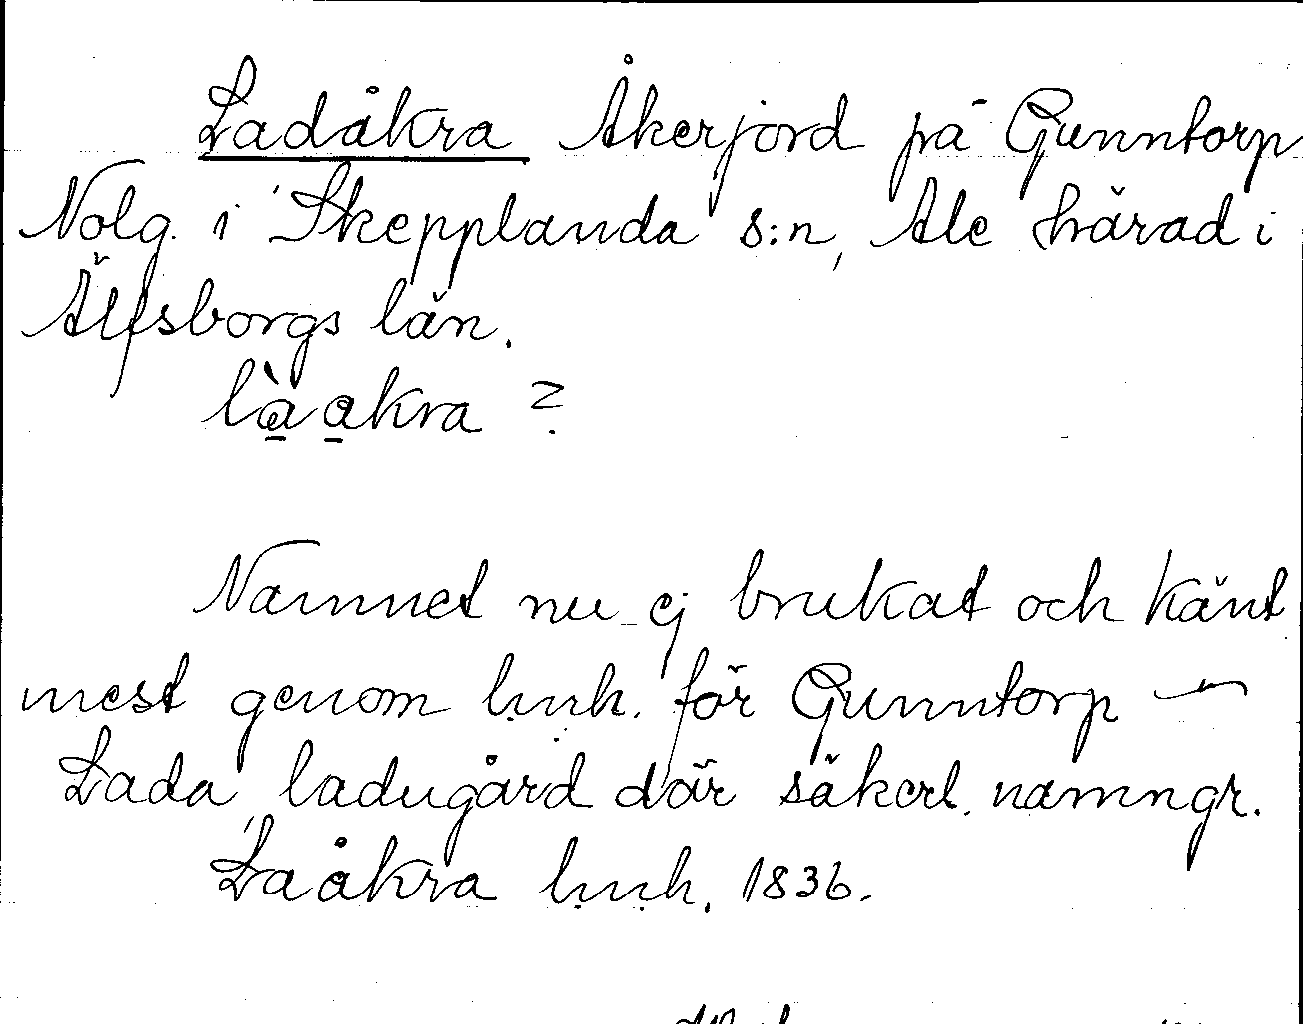 Ladåkra Åkerjord på Gunntorp
Nolg. i Skepplanda s:n, Ale härad i
Älfsborgs län.
là̱a̱kra ?
Namnet nu ej brukat och känt
mest genom hnh. för Gunntorp —
Lada, ladugård där säkerl. namngr.
Laåkra hnh. 1836.